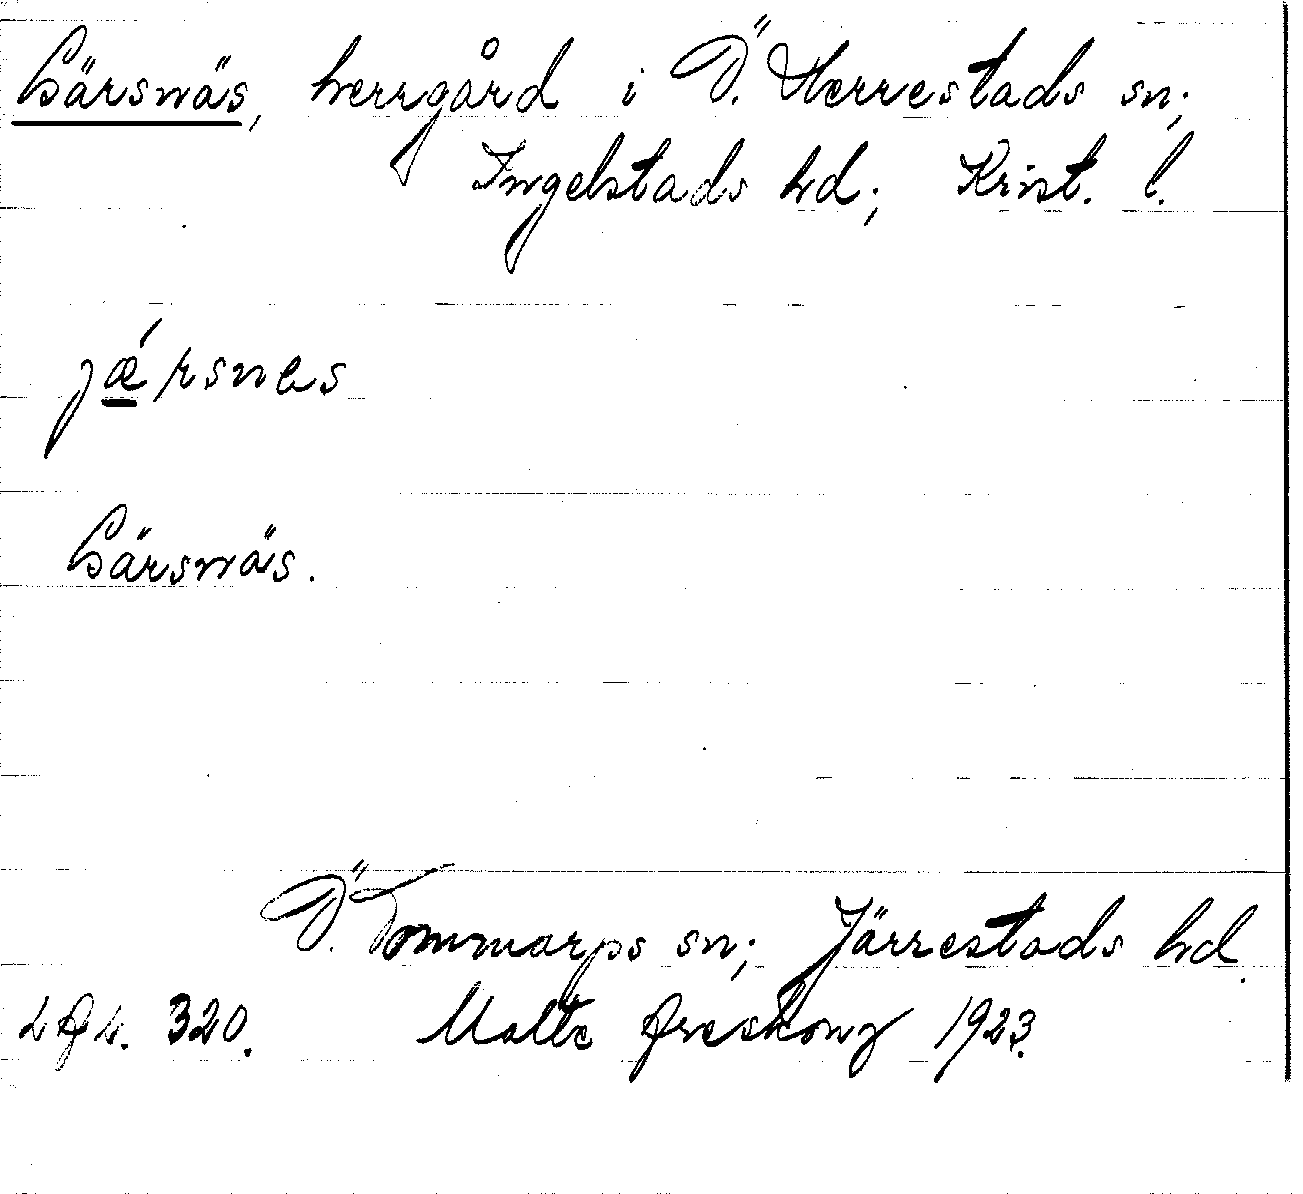 Gärsnäs, herrgård i Ö. Herrestads sn;
Ingelstads hd; Krist. l.
jǽrsnes
Gärsnäs.
Ö. Tommarps sn; Järrestads hd.
320. Malte Areskoug 1923.